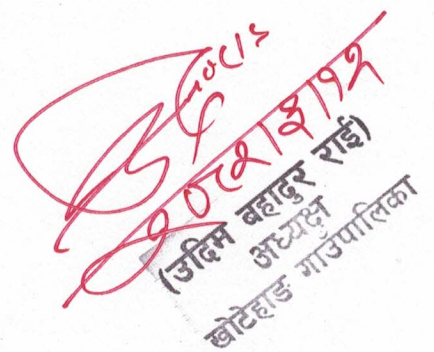 २०८२।३।१२
(उदिम बहादुर राई)
अध्यक्ष
खोटेहाङ गाउँपालिका